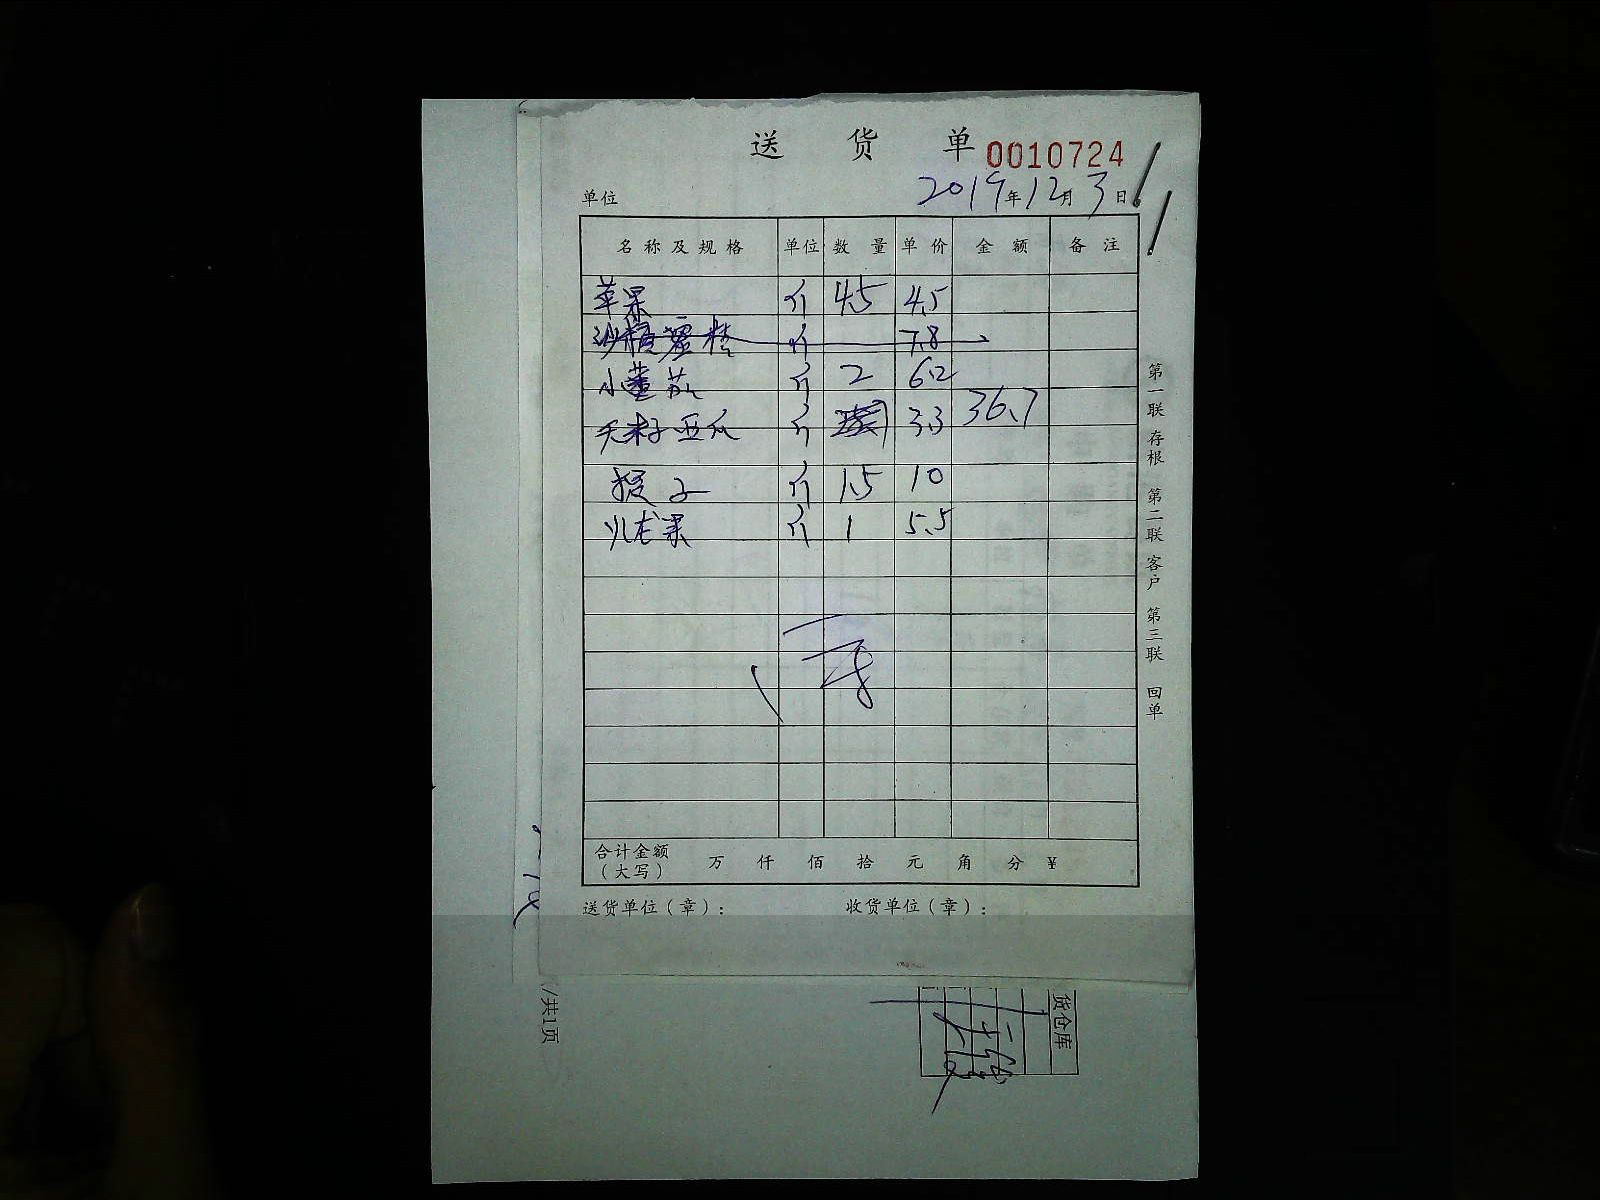 送 货 单 0010724
单位 2019年12月3日
名称及规格 单位 数量 单价 金额 备注
苹果 斤 4.5 4.5
沙糖 桔 斤 7.8
小 茄 斤 2 6.2
无籽西瓜 斤 3.3 36.7
提子 斤 1.5 10
火龙果 斤 1 5.5
合计金额（大写） 万 仟 佰 拾 元 角 分 ¥
送货单位（章）： 收货单位（章）：
第一联 存根 第二联 客户 第三联 回单
/共1页
货仓库